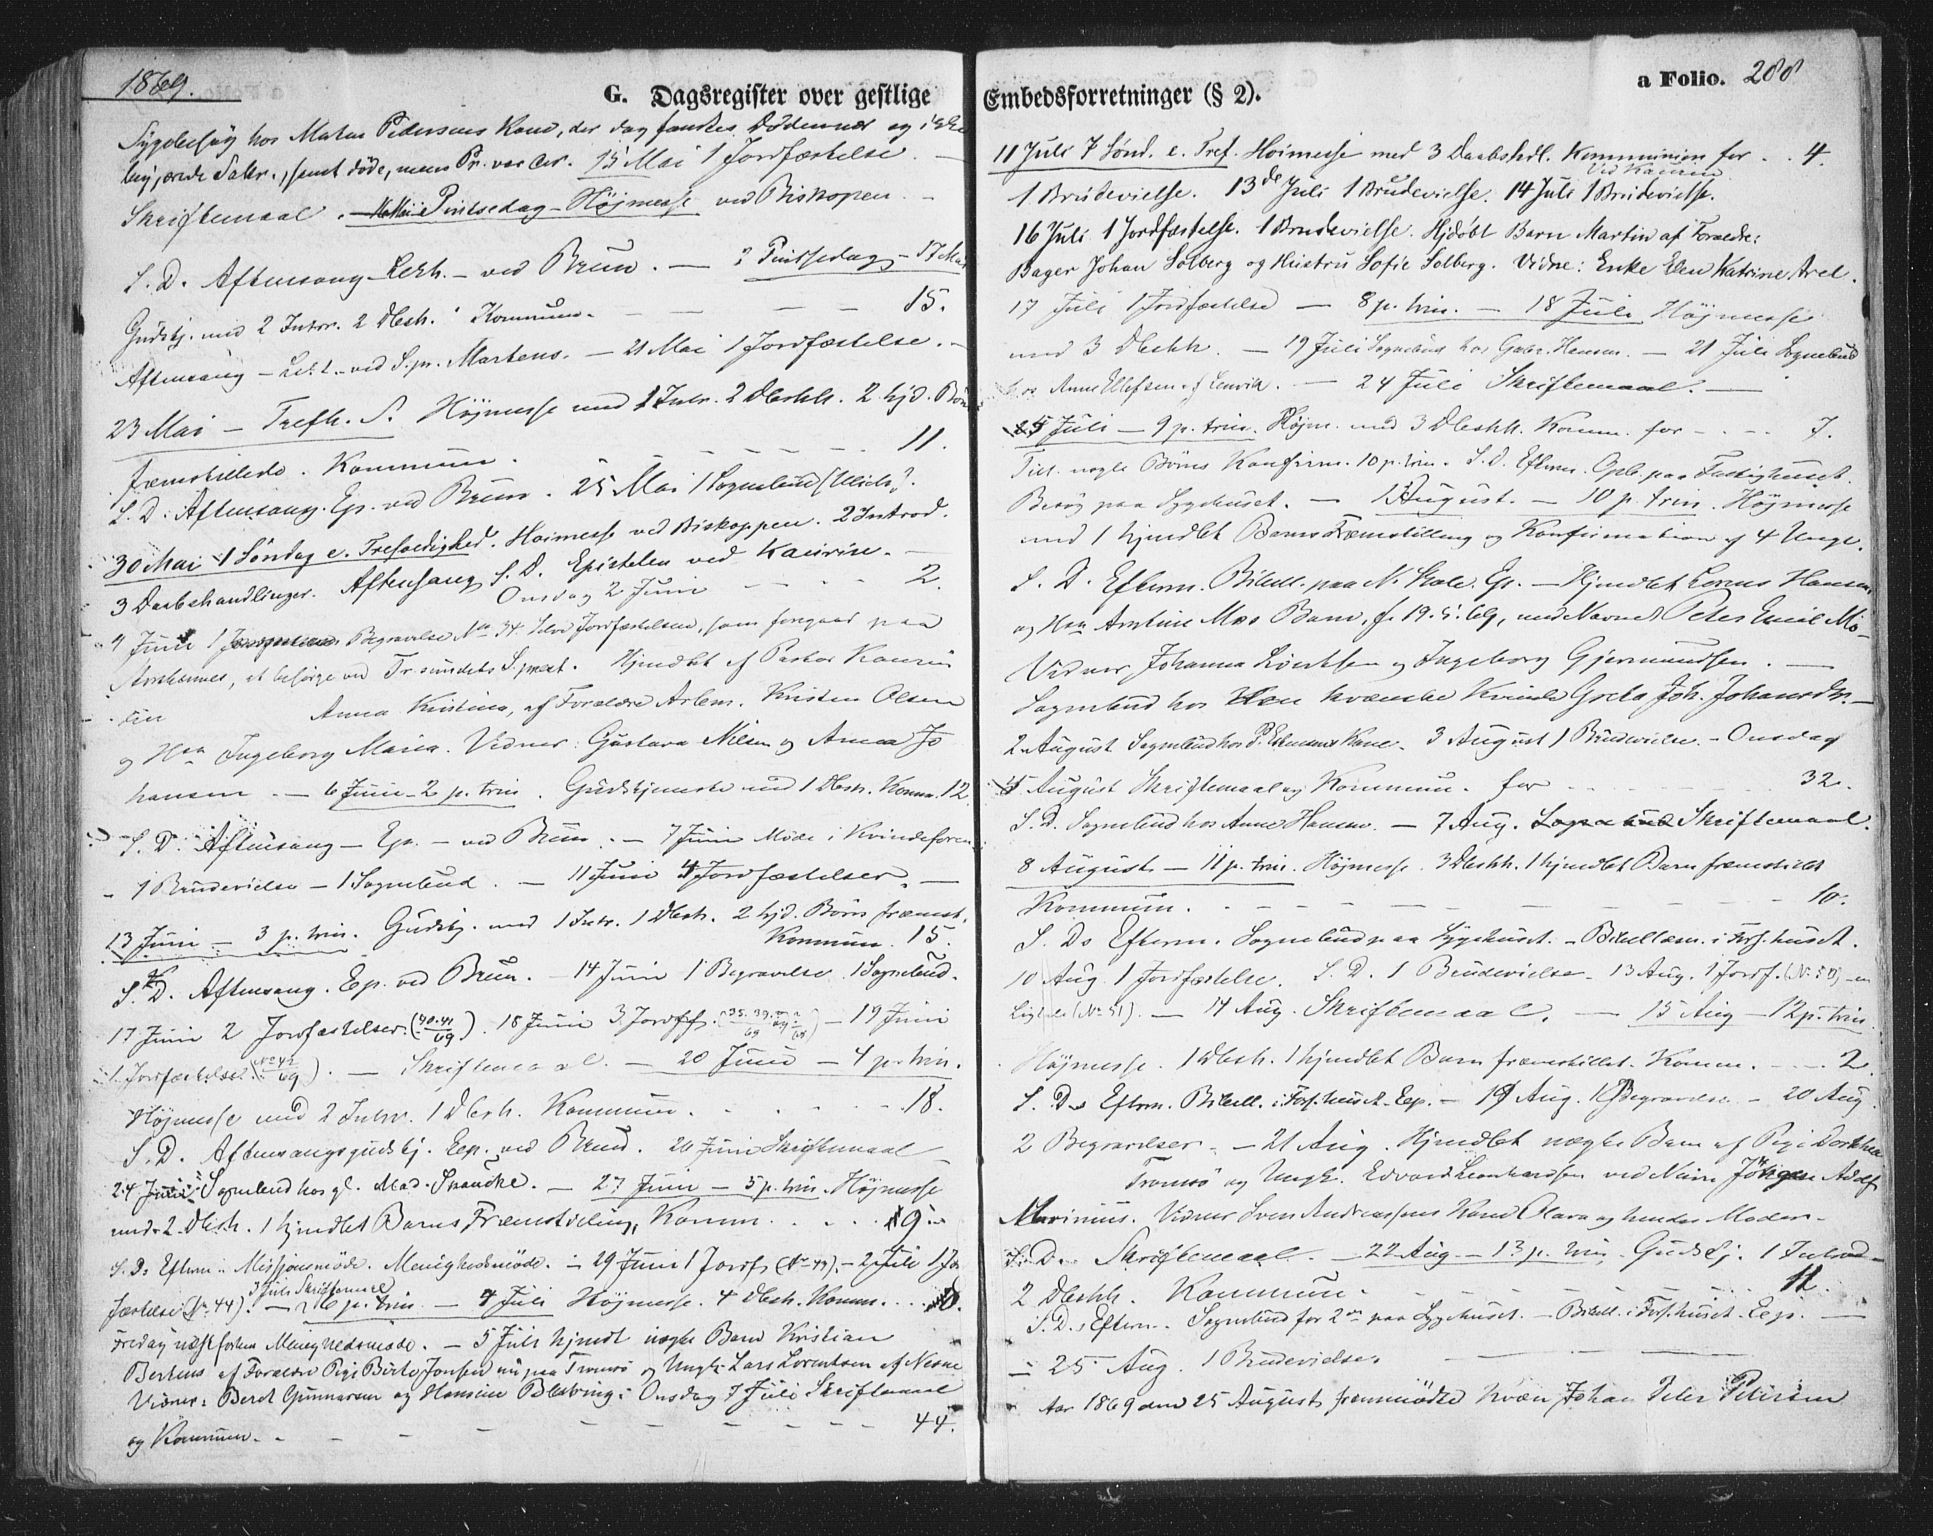 1869.
G. Dagsregister over gestlige
Sygebesøg hos Pedersens Kone, der dog fandtes Døden nær og ikke
, samt døde, mens Pr. var der. 15 Mai 1 Jordfæstelse. —
Skriftemaal. Pintsedag — Højmesse ved Biskopen. —
S. D. Aftensang — ved Brun. — 2 Pintsedag — 17 Mai
Gudstj. med 2 Intr. 2 Dbsh. Kommun. — — — — 15.
Aftensang — ved S.pr. Martens. — 21 Mai 1 Jordfæstelse. —
23 Mai — Trefh. S. Højmesse med 1 Intr. 2 Dbshh. 2 hjd. Børn
fremstillede. Kommun. — — — — 11.
S. D. Aftensang. Ep. ved Brun. 25 Mai 1 Sognebud
30 Mai 1 Søndag e. Trefoldighed. Høimesse ved Biskoppen. 2 Introd.
3 Daabshandlinger. Aftensang S. D. Epistelen ved Kaurin. —
Onsdag 2 Juni — — — 2.
4 Juni 1 Begravelse No 34. Selve Jordfæstelsen, som foregaar paa
, at besørge ved Tr.sundets S.prest. Hjmdbt af Pastor Kaurin
Anna Kristina, af Forældre Arbm. Kristen Olsen
og Hu Ingeborg Maria. Vidner: Gustava Nilsen og Anna Jo
hansen. — 6 Juni — 2 p. trin. Gudstjeneste med 1 Dbsh. Komm. 12
S. D. Aftensang — Ep. — ved Brun. — 7 Juni Møde i Kvindeforen
1 Brudevielse — 1 Sognebud. — 11 Juni 4 Jordfæstelser. —
13 Juni — 3 p. trin. Gudstj. med 1 Intr. 1 Dbsh. 2 hjd. Børn fremst.
Kommun. 15.
S. D. Aftensang. Ep. ved Brun. — 14 Juni 1 Begravelse. 1 Sognebud.
17 Juni 2 Jordfæstelser. (40.41/69). 18 Juni 3 Jordff. — 19 Juni
1 Jordfæstelse. (No 42/69). — Skriftemaal. — 20 Juni — 4 p. trin.
Højmesse med 2 Intr. 1 Dbsh. Kommun. . . . . 18.
S. D. Aftensangsgudstj. Eep. ved Brun. 26 Juni Skriftemaal
24 Juni Sognebud hos gl. Mad. . — 27 Juni — 5 p. trin. Højmesse
med 2 Dbsh. 1 hjmdbt Barns Fremstilling, Komm. . . . 9.
S. D. Efterm. Missjonsmøde. Menighedsmøde. — 29 Juni 1 Jordf (No 43). — 2 Juli 1 Jor
3 Juli Skriftemaal
fæstelse (No. 44). — 6 p. trin. — 4 Juli Højmesse. 4 Dbsh. Komm. . . .
Fredag næst forhen Menighedsmøde. — 5 Juli hjmdt uægte Barn Kristian
Bertens af Forældre Pige Birte Jonsen nu paa Tromsø og Ungk. Lars Lorentsen af Nesne
Vidner: Berit Gunnarsen og Hansine . Onsdag 7 Juli Skriftemaal
og Kommun. — — — — — — 44.
Embedsforretninger (§ 2).
a Folio. 288
11 Juli 7 Sønd. e. Tref. Høimesse med 3 Daabshdl. Kommunion for . . 4.
ved Kaurin
1 Brudevielse. 13de Juli 1 Brudevielse. 14 Juli 1 Brudevielse.
16 Juli 1 Jordfæstelse. 1 Brudevielse. Hjdøbt Barn Martin af Forældre:
Bager Johan Solberg og Hustru Sofie Solberg. Vidne: Enke Elen Katrine Arel.
17 Juli 1 Jordfæstelse — 8 p. trin. — 18 Juli Højmesse
med 3 Dbshh. — 19 Juli Sognebud hos Hansen. — 21 Juli Sognebud
hos Anne Ellefsen af Lenvik. — 24 Juli Skriftemaal. —
25 Juli — 9 p. trin. Højm. med 3 Dbshh. Komm. for — — 7.
nogle Børns Konfirm. 10 p. trin. S. D. Efterm. Opb. paa Fattighuset.
Besøg paa Sygehuset. — 1 August. — 10 p. trin. Højmesse
med 1 hjmdbt Barns Fremstilling og Konfirmation af 4 Unge.
S. D. Efterm. Bibell. paa N. Skole. Ep. — Hjmdbt Hansens
og Hu Barn, f. 19.5.69, med Navnet Peter Emil
Vidner Johanna og Ingeborg Gjermundsen. —
Sognebud hos kvænske Kvinde Greta Joh. —
2 August Sognebud hos Kone. 3 August 1 Brudevielse. — Onsdag
5 August Skriftemaal og Kommun. for — — — 32.
S. D. Sognebud hos Anne Hansen. — 7 Aug. Skriftemaal.
8 August — 11 p. trin. Højmesse. 3 Dbshh. 1 hjmdbt Barn fremstillet
Kommun. — — — — — — 10.
S. D. Efterm. Sognebud paa Sygehuset. — Bibellæsn. i Forf.huset.
10 Aug. 1 Jordfæstelse. S. D. 1 Brudevielse — 13 Aug. 1 Jordf. (No. 50) — en
(No 51). — 14 Aug. Skriftemaal. — 15 Aug — 12 p. trin.
Højmesse. 1 Dbsh. 1 hjmdbt Barn fremstillet. Komm. — — 2.
S. D. Efterm. Bibell. i Forf.huset. Eep. — 19 Aug. 1 Begravelse. — 20 Aug
2 Begravelser. — 21 Aug. Hjmdbt uægte Barn af Pige Dorthea
Tromsø og Ungk. Edvard Leonhardsen ved Navn Jørgen Adolf
Marinius. Vidner Sven Andreassens Kone Olava og hendes Moder. —
S. D. Skriftemaal. — 22 Aug. — 13 p. trin. Gudstj. 1 Introd —
2 Dbshh. Kommun. — — — — 11.
S. D. Efterm. Sognebud for 2 paa Sygehuset. — Bibell. i Forf.huset. Eep. —
— 25 Aug. 1 Brudevielse. — — —
Aar 1869 den 25 August fremmødte Kvæn Johan Peter Petersen